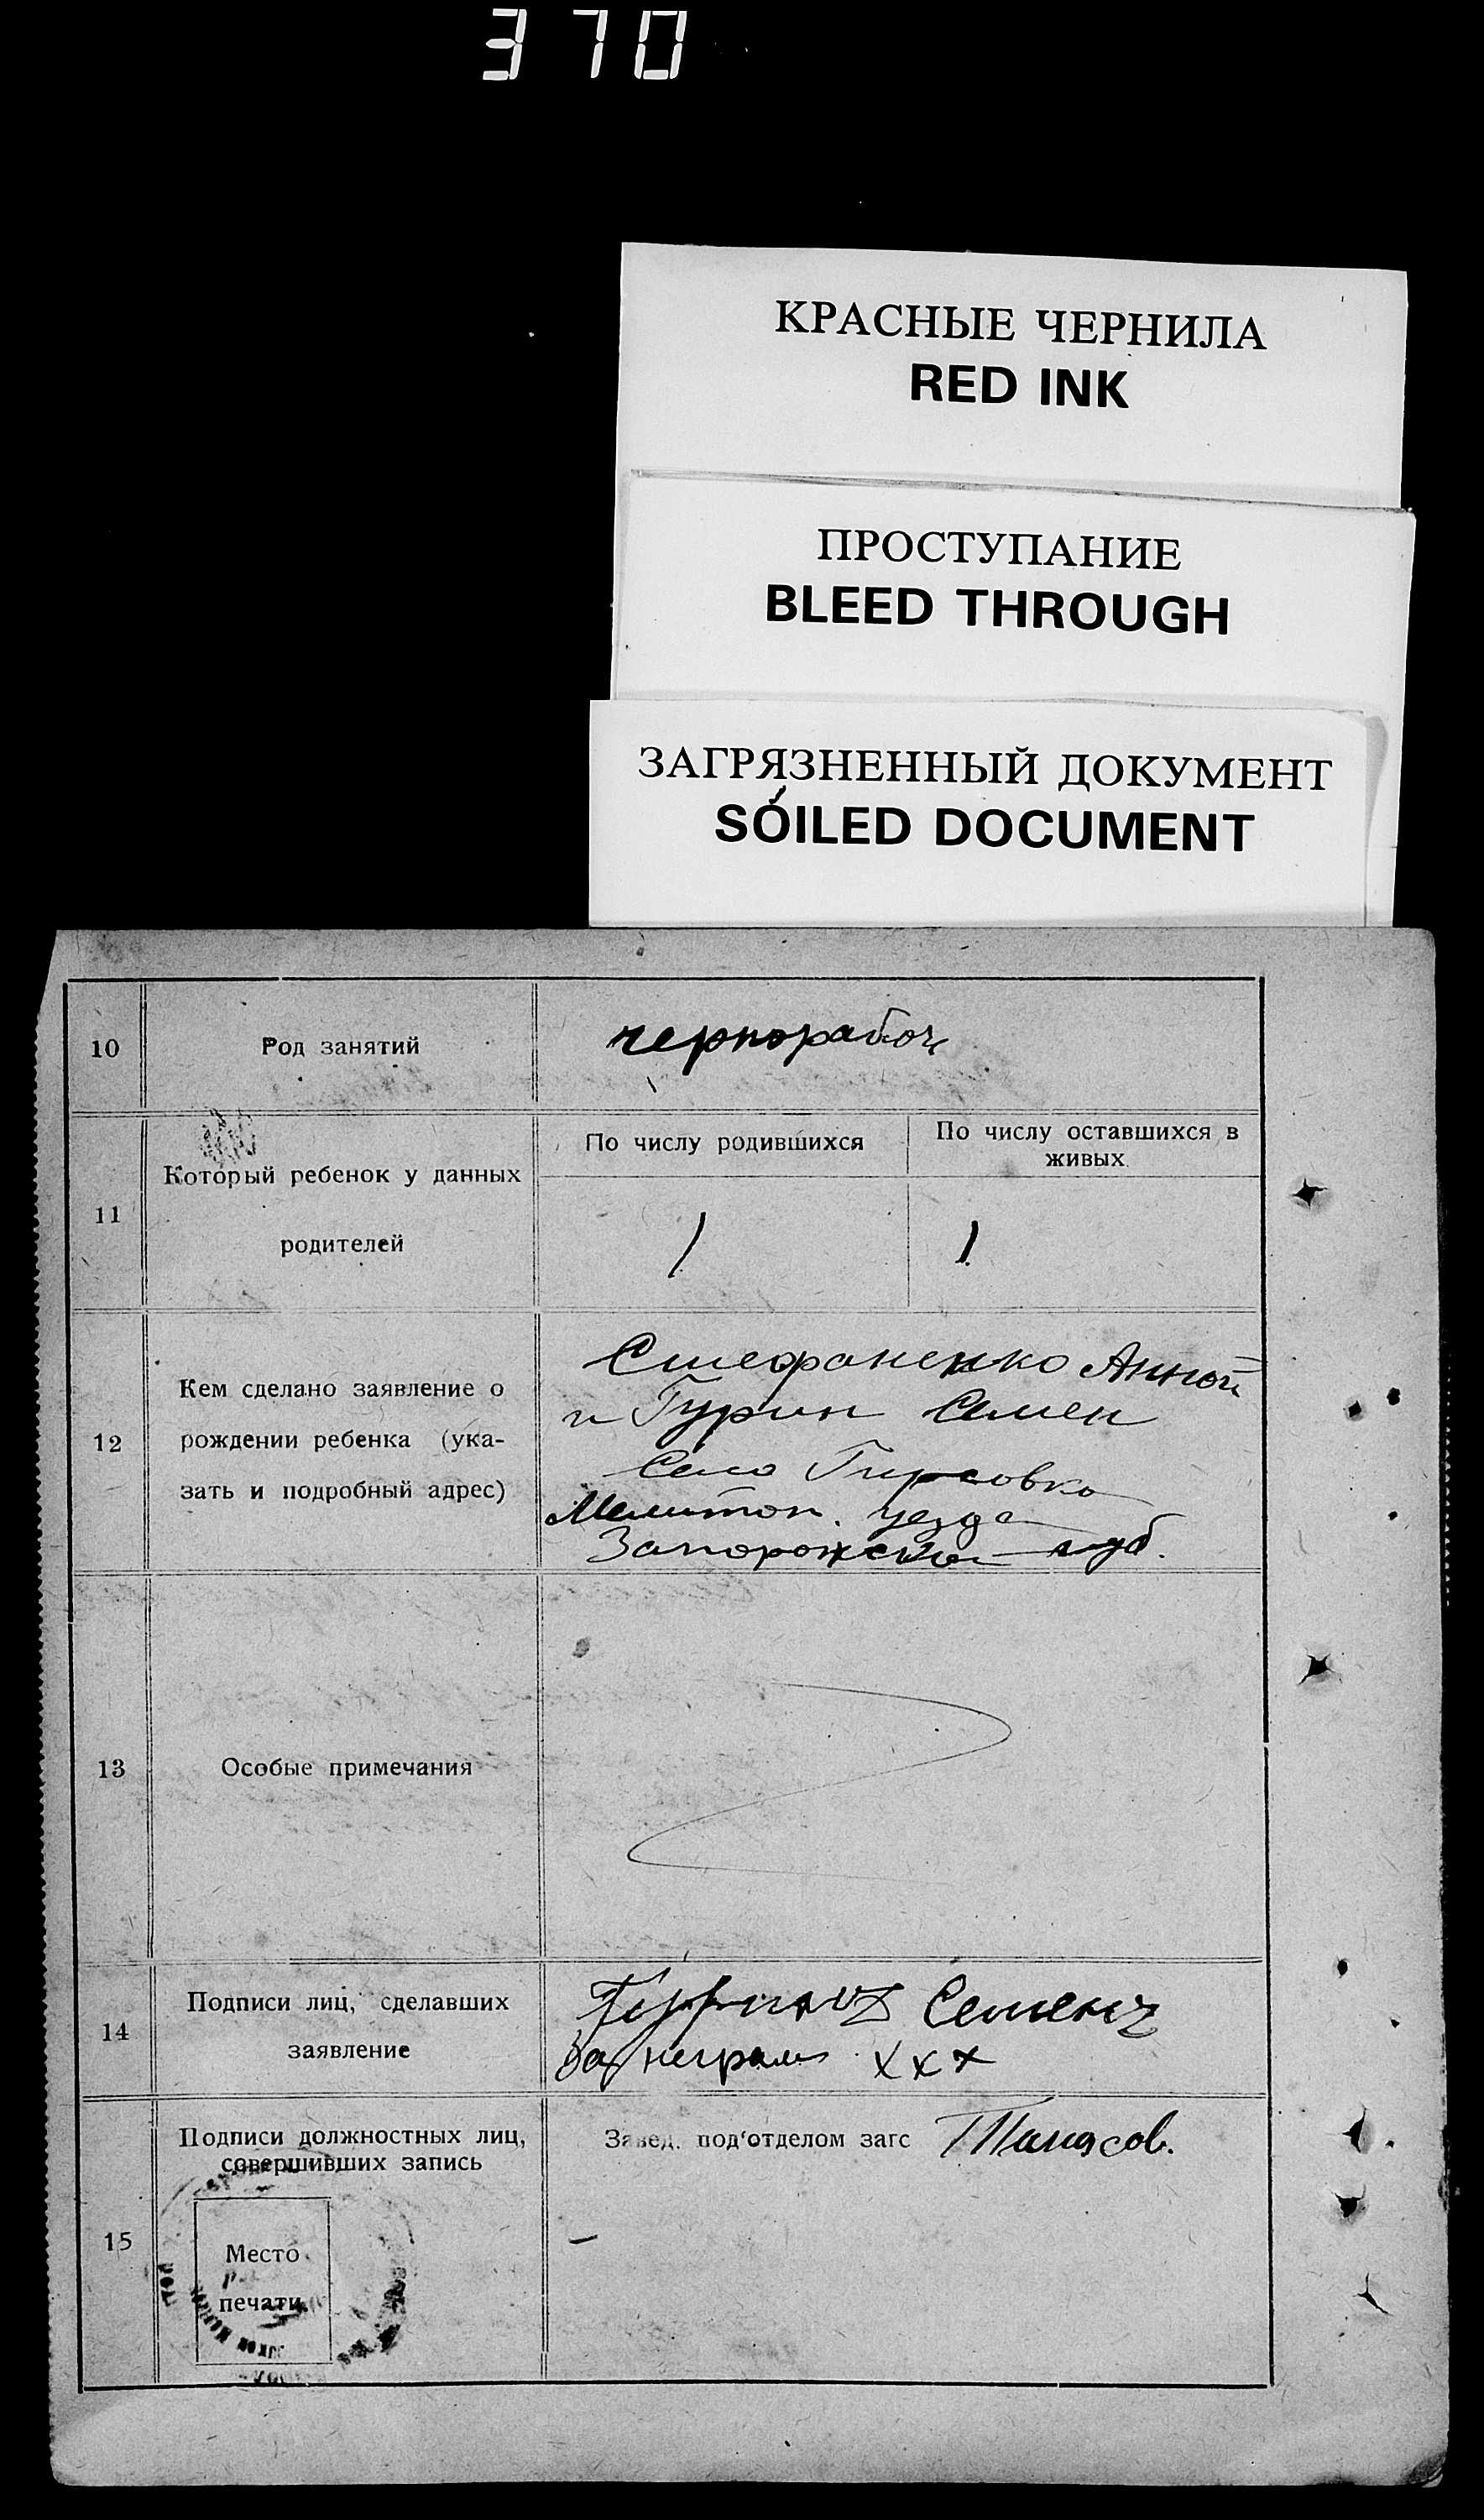 370
КРАСНЫЕ ЧЕРНИЛА
RED INK
ПРОСТУПАНИЕ
BLEED THROUGH
ЗАГРЯЗНЕННЫЙ ДОКУМЕНТ
SOILED DOCUMENT
10 Род занятий чернорабоч
По числу родившихся По числу оставшихся в
живых
11 Который ребенок у данных
родителей
1 1
12 Кем сделано заявление о
рождении ребенка (ука-
зать и подробный адрес)
Стефаненко Анной
и Гурин Семен
Село Гирсовка
Мелитоп. уезда
Запорожской губ.
13 Особые примечания
14 Подписи лиц, сделавших
заявление
Семенъ
За неграм ххх
15 Подписи должностных лиц,
совершивших запись
Завед. под'отделом загс
Место
печати